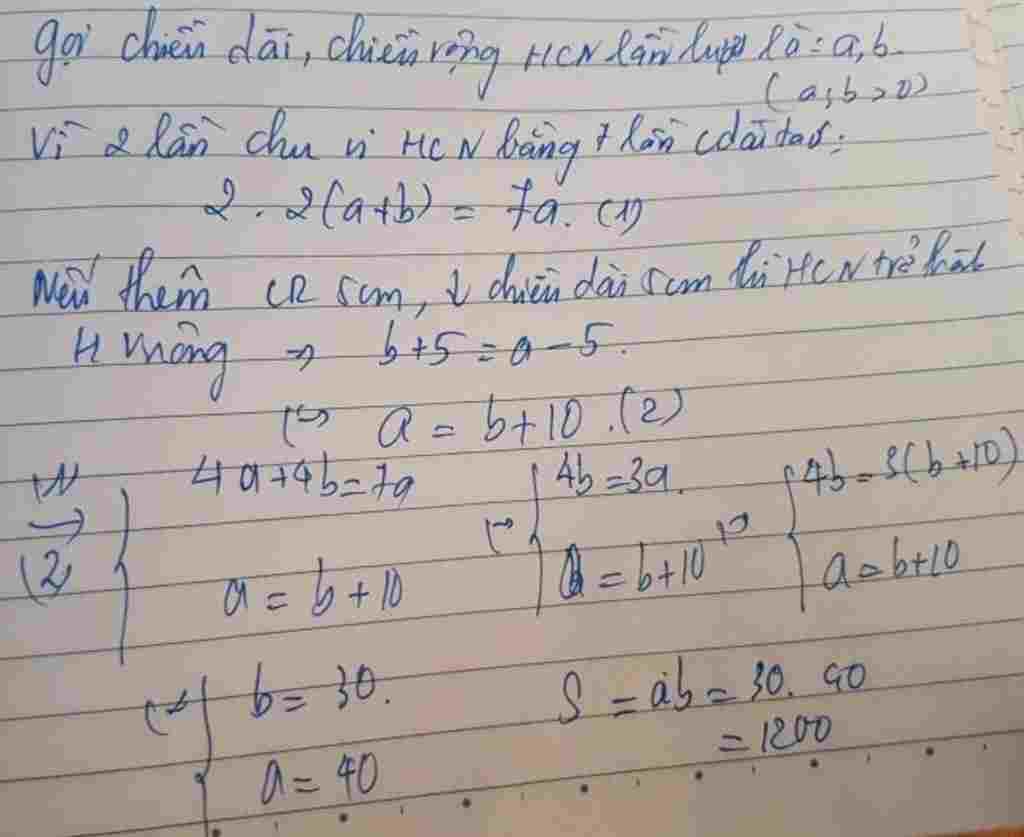 gọi chiều dài, chiều rộng HCN lần lượt là: a, b.
(a; b > 0)
Vì 2 lần chu vi HCN bằng 7 lần cdài
2 . 2(a+b) = 7a. (1)
Nếu thêm CR 5cm, ↓ chiều dài 5cm thì HCN trở
H vuông => b+5 = a-5.
<=> a = b+10. (2)
(1)
(2) => { 4a+4b=7a <=> { 4b=3a. <=> { 4b=3(b+10)
a = b+10 a = b+10 a = b+10
<=> { b = 30. S = ab = 30. 40
a = 40 = 1200